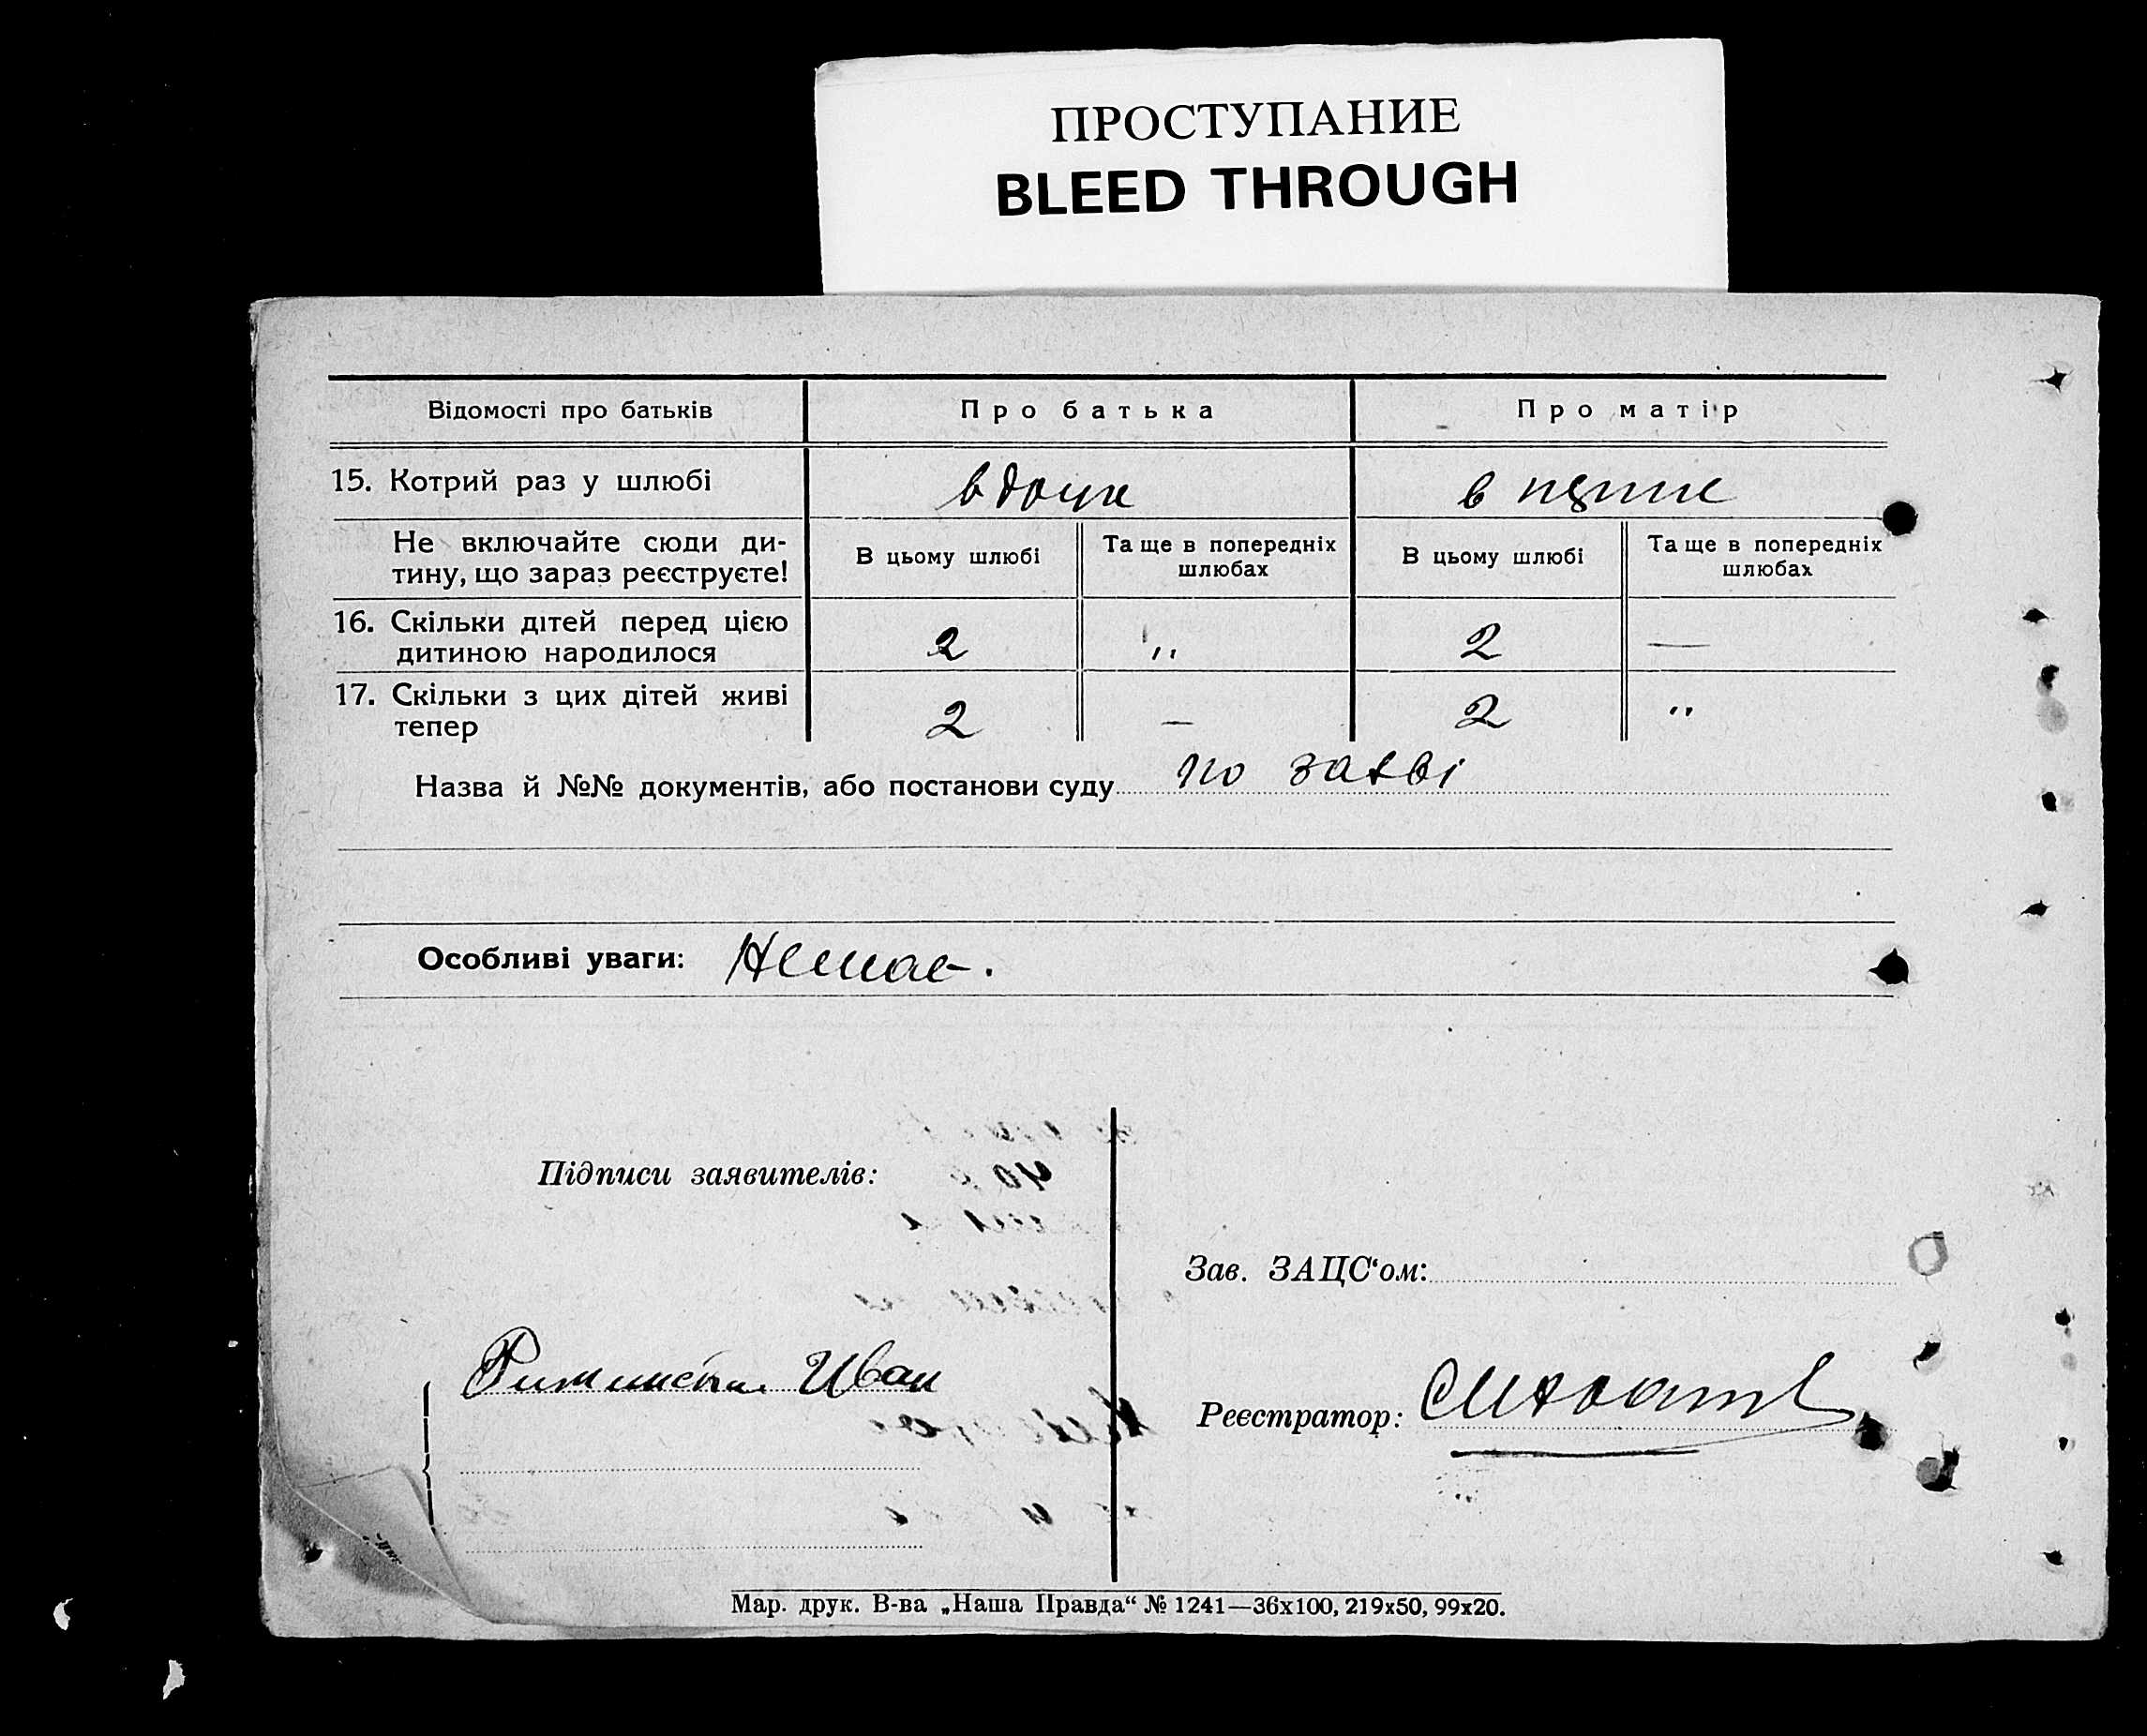 ПРОСТУПАНИЕ
BLEED THROUGH
Відомості про батьків Про батька Про матір
15. Котрий раз у шлюбі в
Не включайте сюди ди-
тину, що зараз реєструєте!
В цьому шлюбі Та ще в попередніх
шлюбах
В цьому шлюбі Та ще в попередніх
шлюбах
16. Скільки дітей перед цією
дитиною народилося
2 „ 2 —
17. Скільки з цих дітей живі
тепер
2 — 2 „
Назва й №№ документів, або постанови суду по заяві
Особливі уваги: Немає.
Підписи заявителів:
Зав. ЗАЦС‘ом:
Иван
Реєстратор:
Мар. друк. В-ва „Наша Правда“ № 1241—36х100, 219х50, 99х20.